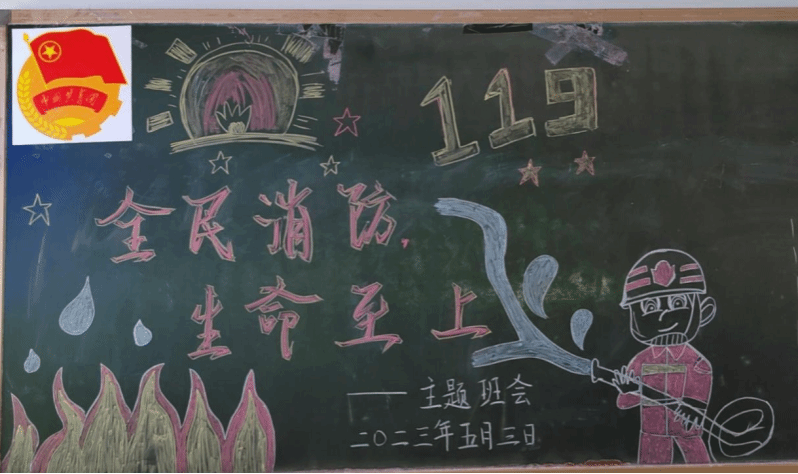 中国共青团
119
全民消防，
生命至上
——主题班会
二〇二三年五月三日